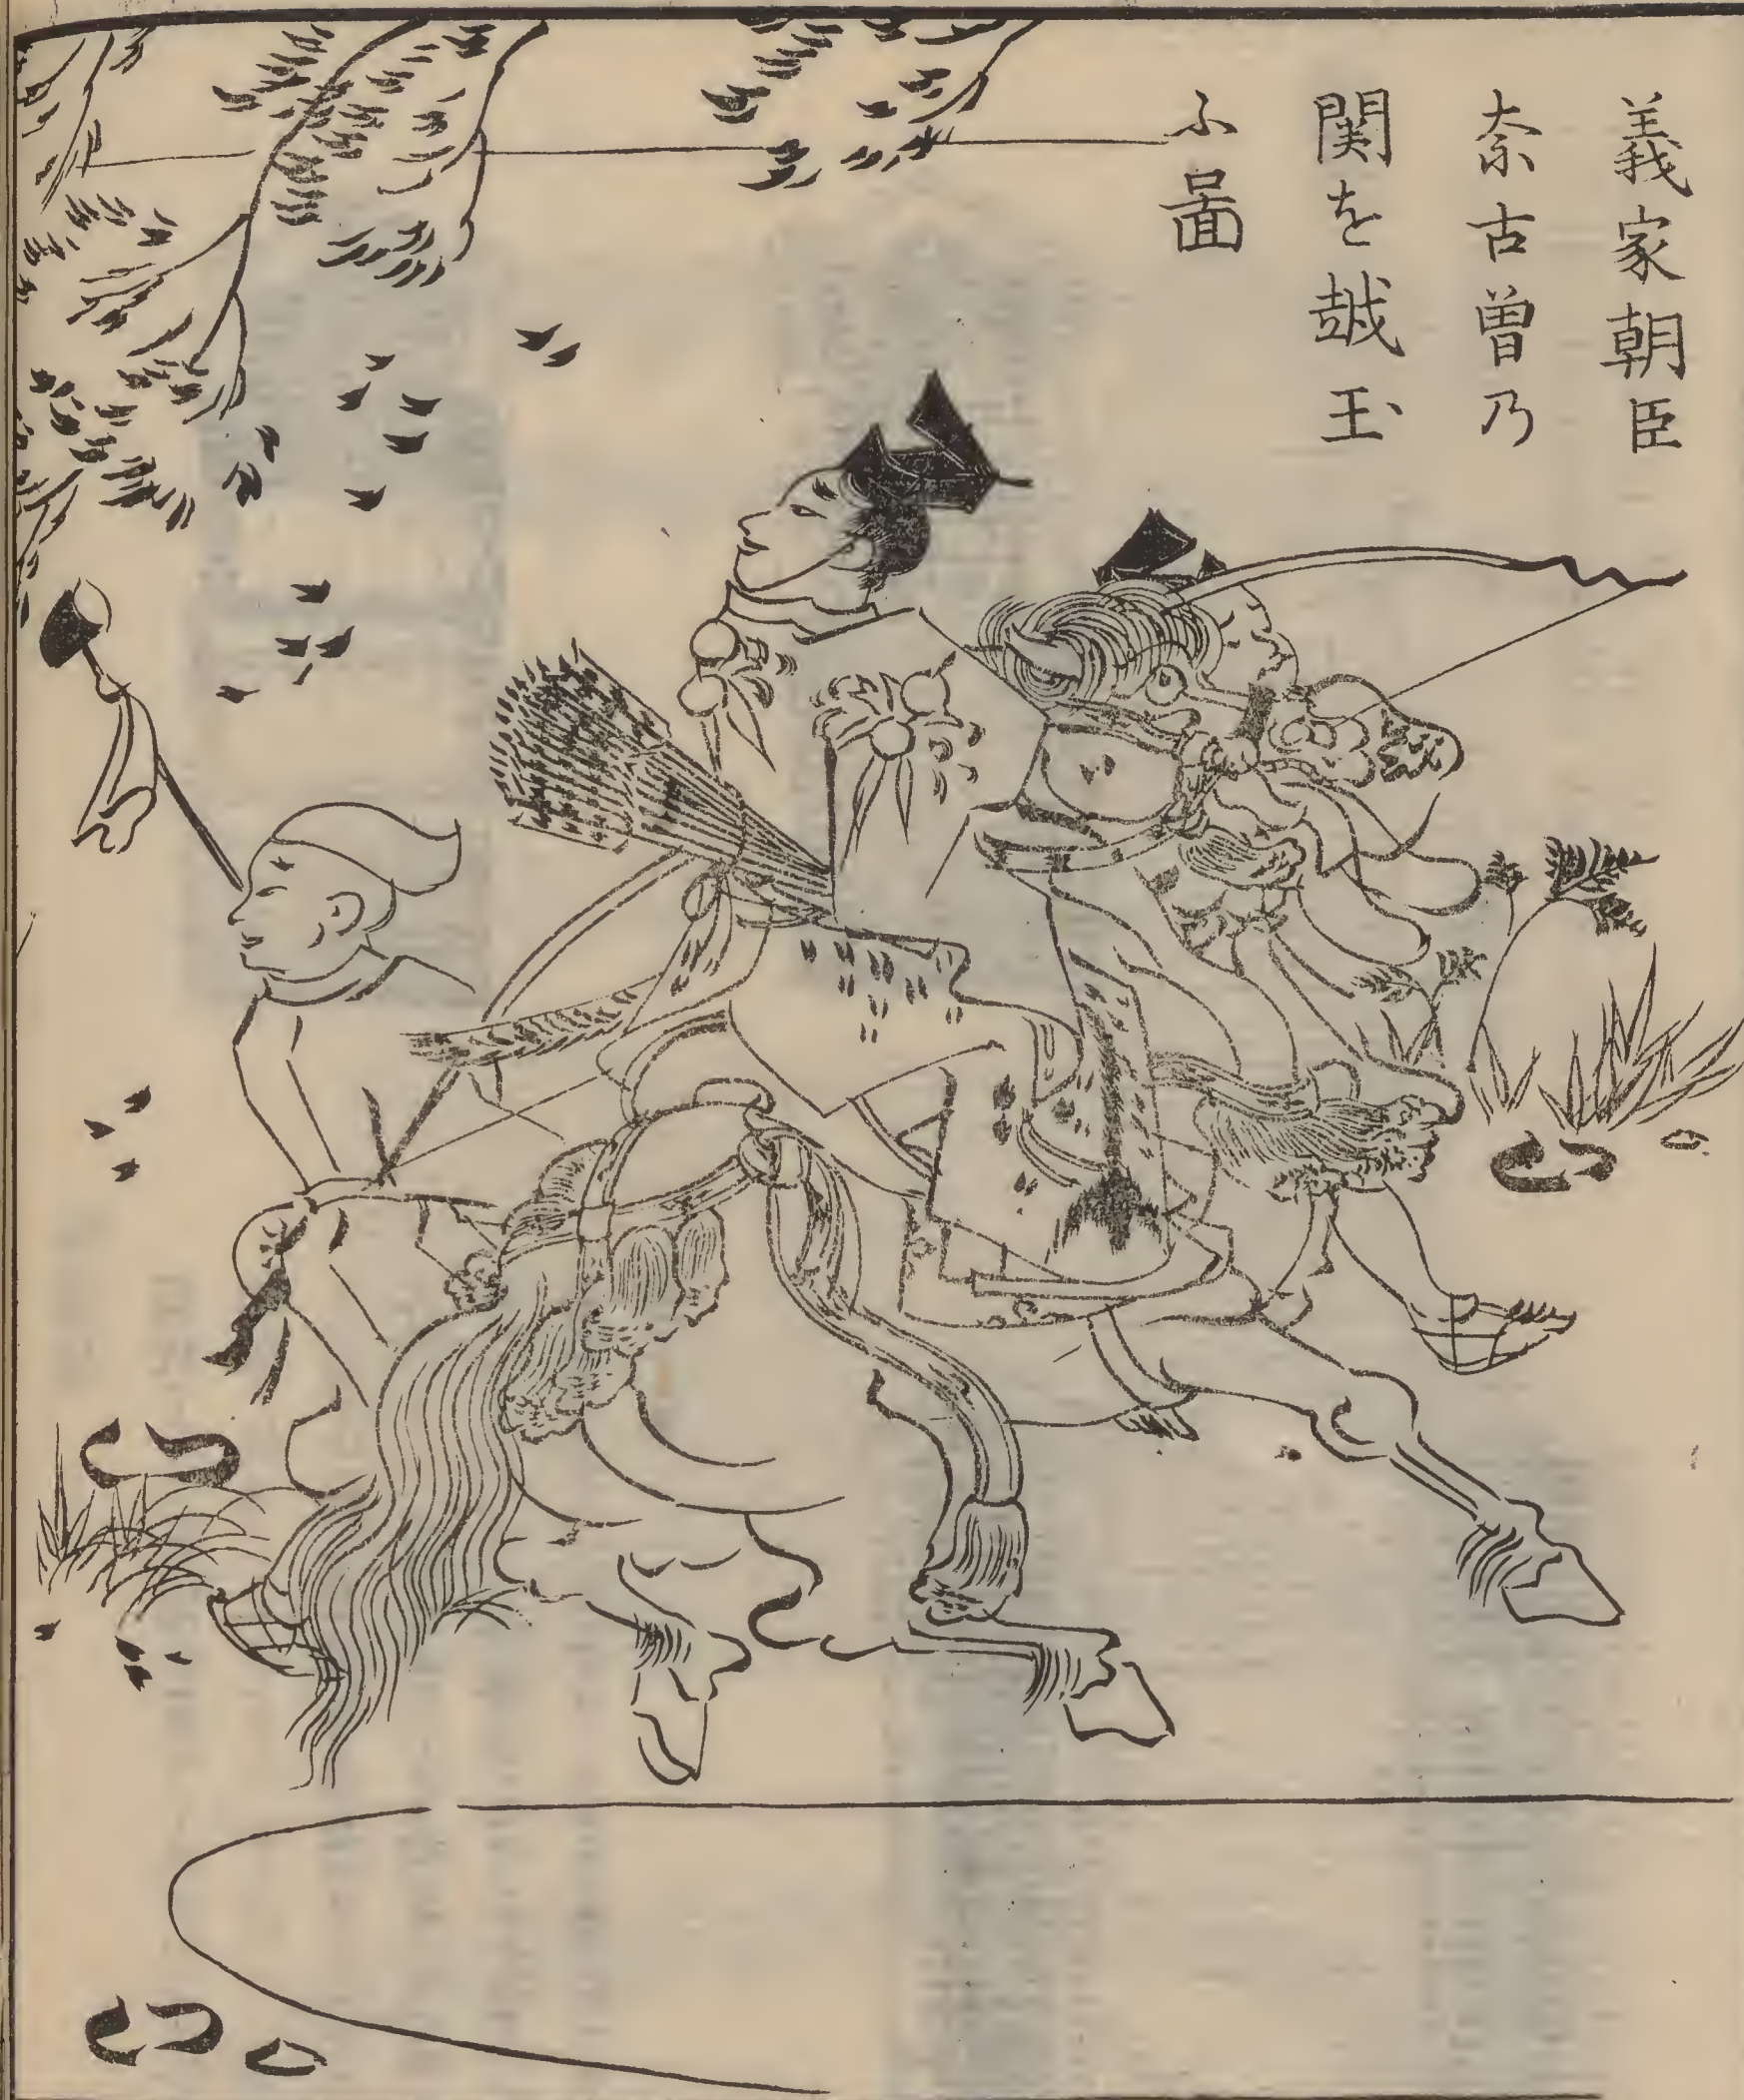 義家朝臣
奈古曽乃
関を越玉
ふ啚